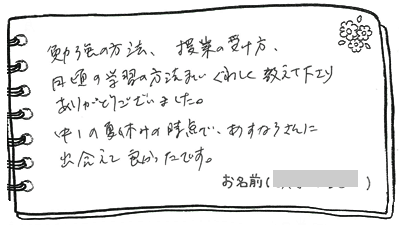 勉強の方法、授業の受け方、
問題の学習の方法まで くわしく教えて下さり
ありがとうございました。
中1の夏休みの時点で、あすなろさんに
出会えて良かったです。
お名前( )